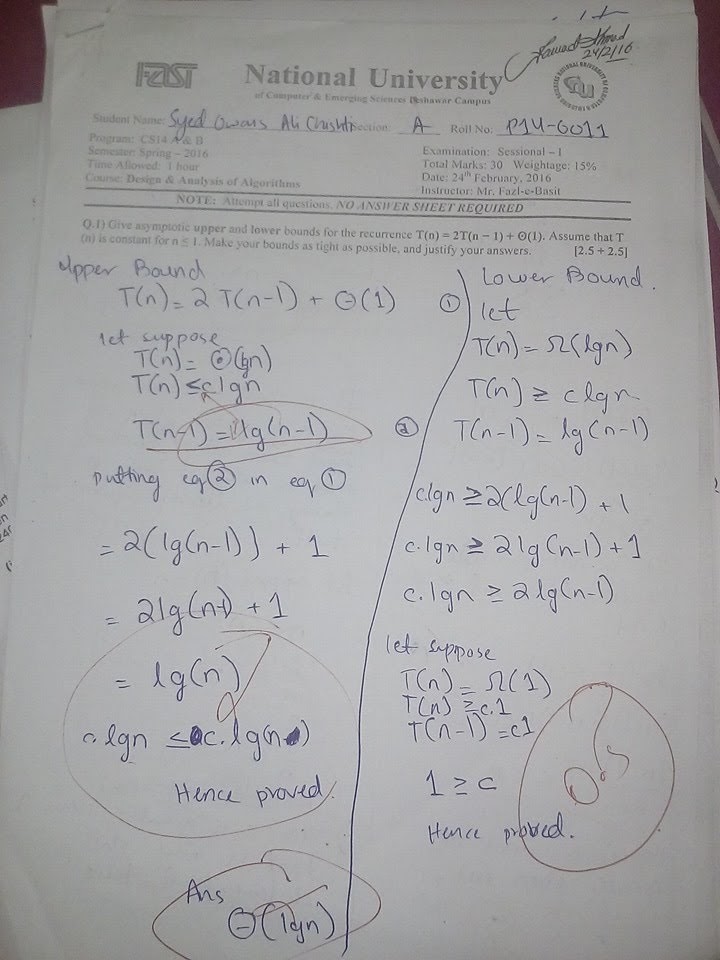 Fawad Ahmad
24/2/16
FAST National University
of Computer & Emerging Sciences Peshawar Campus
Student Name: Syed Owais Ali Chishti Section: A Roll No: P14-6011
Program: CS14 A & B
Semester: Spring – 2016
Time Allowed: 1 hour
Course: Design & Analysis of Algorithms
Examination: Sessional – I
Total Marks: 30 Weightage: 15%
Date: 24th February, 2016
Instructor: Mr. Fazl-e-Basit
NOTE: Attempt all questions. NO ANSWER SHEET REQUIRED
Q.1) Give asymptotic upper and lower bounds for the recurrence T(n) = 2T(n – 1) + Θ(1). Assume that T
(n) is constant for n ≤ 1. Make your bounds as tight as possible, and justify your answers. [2.5 + 2.5]
Upper Bound
T(n) = 2 T(n-1) + Θ(1) ①
let suppose
T(n) = Θ(lgn)
T(n) ≤ c lgn
T(n-1) = lg(n-1) ②
putting eq ② in eq ①
= 2(lg(n-1)) + 1
= 2lg(n-1) + 1
= lg(n)
c.lgn ≤ c.lg(n)
Hence proved.
Ans
Θ(lgn)
Lower Bound.
let
T(n) = Ω(lgn)
T(n) ≥ c lgn
T(n-1) = lg(n-1)
c.lgn ≥ 2(lg(n-1) + 1
c.lgn ≥ 2lg(n-1)+1
c.lgn ≥ 2lg(n-1)
let suppose
T(n) = Ω(1)
T(n) ≥ c.1
T(n-1) = c1
1 ≥ c
Hence proved.
0.5